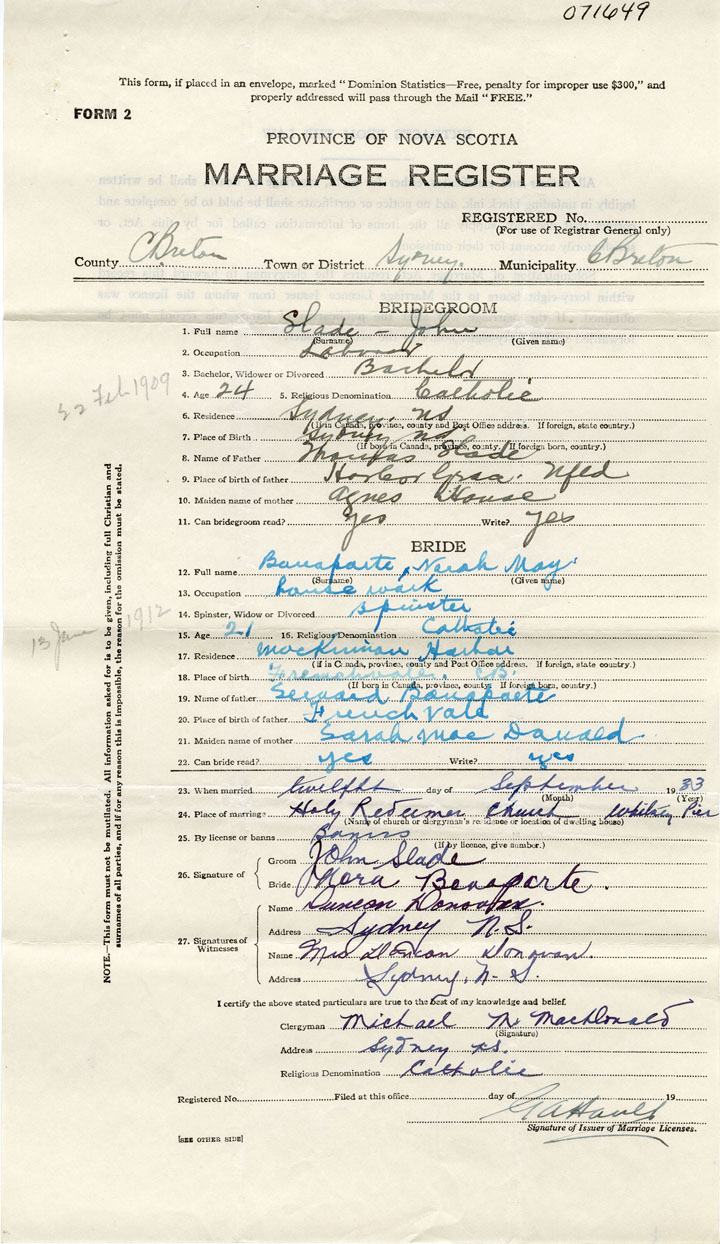 071649
This form, if placed in an envelope, marked "Dominion Statistics—Free, penalty for improper use $300," and
properly addressed will pass through the Mail "FREE."
FORM 2
PROVINCE OF NOVA SCOTIA
MARRIAGE REGISTER
REGISTERED No.
(For use of Registrar General only)
County C Breton Town or District Sydney. Municipality C Breton
BRIDEGROOM
1. Full name Slade - John
(Surname) (Given name)
2. Occupation Laborer
3. Bachelor, Widower or Divorced Bachelor
4. Age 24 5. Religious Denomination Catholic
22 Feb 1909
6. Residence Sydney. NS
(If in Canada, province, county and Post Office address. If foreign, state country.)
7. Place of Birth Sydney NS
(If born in Canada, province, county. If foreign born, country.)
8. Name of Father Thomas Slade
9. Place of birth of father Harbor Grace. Nfld
10. Maiden name of mother Agnes House
11. Can bridegroom read? Yes Write? Yes
BRIDE
12. Full name Bonaparte, Norah May
(Surname) (Given name)
13. Occupation house work
14. Spinster, Widow or Divorced Spinster
13 June 1912
15. Age 21 16. Religious Denomination Catholic
17. Residence MacKinnon Harbor
(If in Canada, province, county and Post Office address. If foreign, state country.)
18. Place of birth Frenchvale. CB.
(If born in Canada, province, county. If foreign born, country.)
19. Name of father Bonaparte
20. Place of birth of father French Vale
21. Maiden name of mother Sarah Mac Donald
22. Can bride read? yes Write? yes
23. When married twelfth day of September 1933
(Month) (Year)
24. Place of marriage Holy Redeemer Church Whitney Pier
(Name of church or clergyman's residence or location of dwelling house)
25. By license or banns Banns
(If by licence, give number.)
26. Signature of
Groom John Slade
Bride Nora Bonaparte.
27. Signatures of Witnesses
Name Duncan Donovan.
Address Sydney N.S.
Name Mrs Duncan Donovan.
Address Sydney, N. S.
I certify the above stated particulars are true to the best of my knowledge and belief.
Clergyman Michael M. MacDonald
(Signature)
Address Sydney NS.
Religious Denomination Catholic
Registered No. Filed at this office day of 19
Signature of Issuer of Marriage Licenses.
[SEE OTHER SIDE]
NOTE.—This form must not be mutilated. All information asked for is to be given, including full Christian and
surnames of all parties, and if for any reason this is impossible, the reason for the omission must be stated.